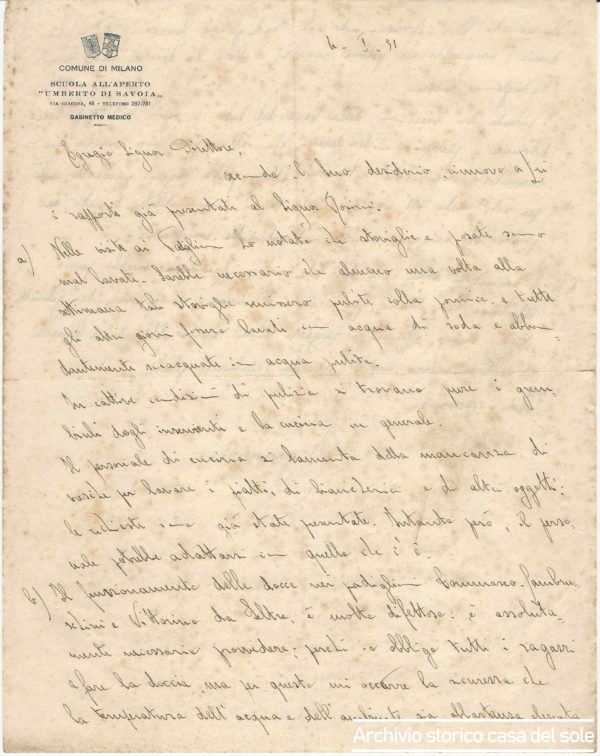 COMUNE DI MILANO
SCUOLA ALL'APERTO
"UMBERTO DI SAVOIA„
VIA GIACOSA, 46 - TELEFONO 287-781
GABINETTO MEDICO
4. I. 31
Egregio Signor Direttore,
secondo il Suo desiderio, rinnovo a Lei
i rapporti già presentati al Signor
a) Nelle visite ai Padiglioni ho notato che stoviglie e posate sono
mal lavate. Sarebbe necessario che almeno una volta alla
settimana tali stoviglie venissero pulite colla pomice, e tutti
gli altri giorni fossero lavati con acqua di soda e abbon
dantemente sciacquate in acqua pulita.
In cattive condizioni di pulizia si trovano pure i grem
biuli degli inservienti e la cucina in generale.
Il personale di cucina si lamenta della mancanza di
vasche per lavare i piatti, di biancheria e di altri oggetti:
le richieste sono già state presentate. Intanto però, il perso
nale potrebbe adattarsi con quello che c'è.
b) Il funzionamento delle docce nei padiglioni Tommaseo, Lambru-
schini e Vittorino da Feltre, è molto difettoso: è assoluta
mente necessario provvedere; perchè io obbligo tutti i ragazzi
a fare la doccia, ma per questo mi occorre la sicurezza che
la temperatura dell'acqua e dell'ambiente sia abbastanza elevata
Archivio storico casa del sole